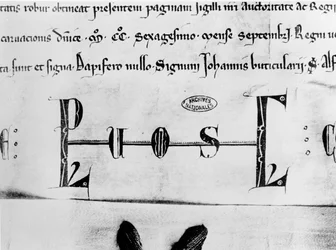 tatis robur obtineat presentem paginam sigilli nr̄i Auctoritate Ac Regij
carnacionis dn̄ice · mͦ · CCͦ · sexagesimo · mense septembrj · Regni ũ
ta sunt et signa · Dapifero nullo · Signum Johannis buticularij · S · Alf
ARCHIVES NATIONALES
P U O S L